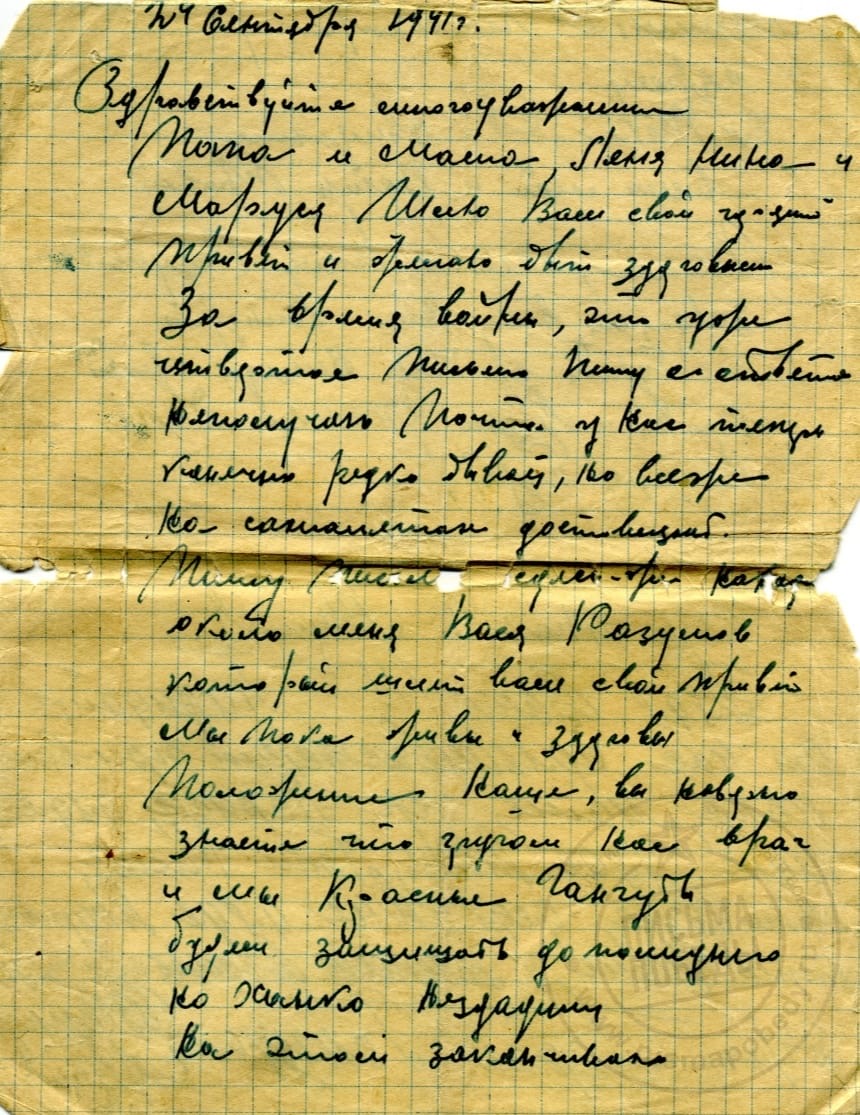 24 Сентября 1941 г.
Здравствуйте многоуважаемые
Папа и Мама, Лёня Нина и
Маруся Шлю Вам свой горячий
привет и желаю быть здоровым
За время войны, это уже
письмо пишу а ответа
неполучаю Почта у нас теперь
конечно редко бывает, но всеже
на самолетах
Пишу
около меня Вася Разумов
который шлет вам свой привет
Мы пока живы и здоровы
Положение наше, вы наверно
знаете что кругом нас враг
и мы Красный Гангут
будем защищать до последнего
но Ханко нездадим
На этом заканчиваю